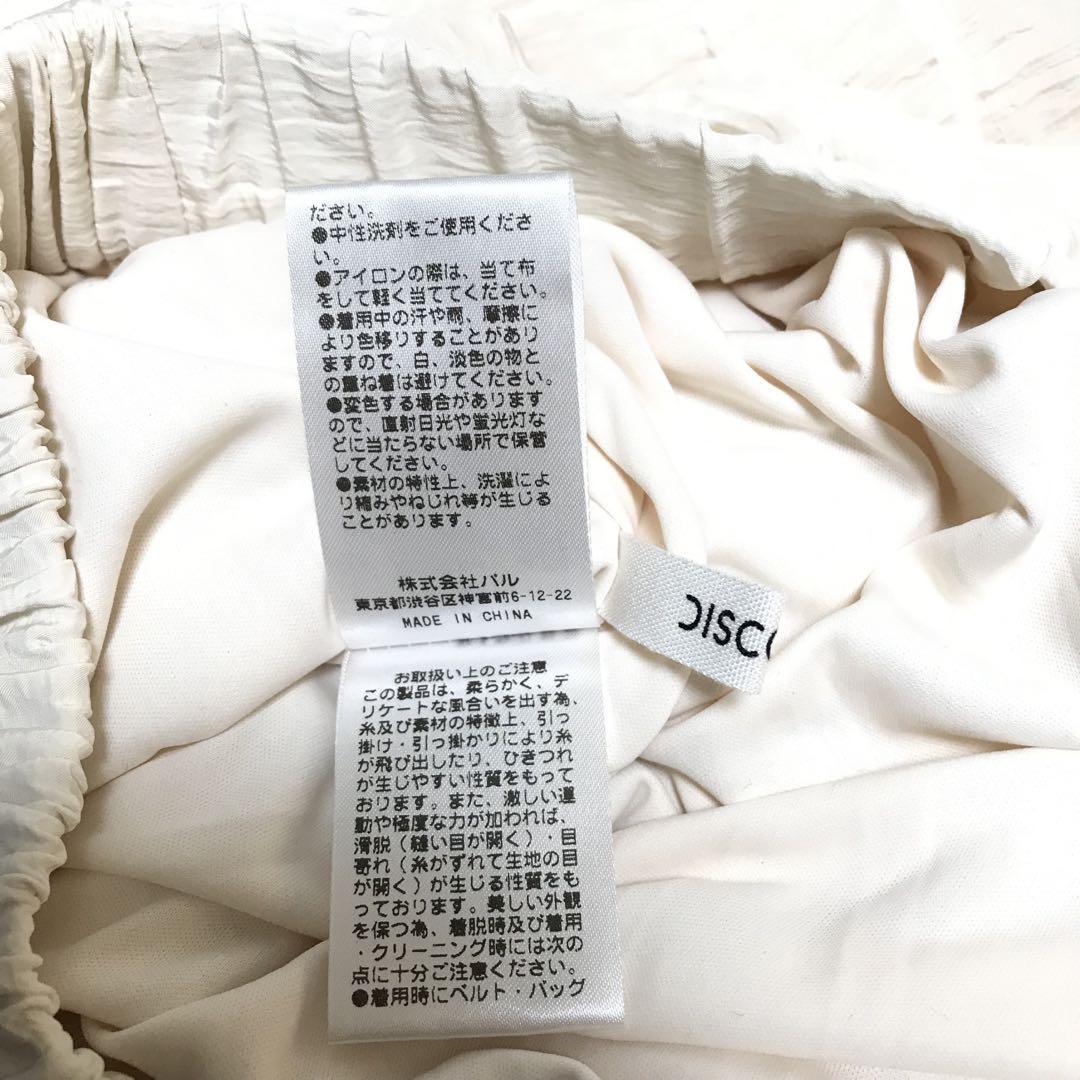 ださい。
●中性洗剤をご使用くださ
い。
●アイロンの際は、当て布
をして軽く当ててください。
●着用中の汗や雨、摩擦に
より色移りすることがあり
ますので、白、淡色の物と
の重ね着は避けてください。
●変色する場合があります
ので、直射日光や蛍光灯な
どに当たらない場所で保管
してください。
●素材の特性上、洗濯によ
り縮みやねじれ等が生じる
ことがあります。
株式会社パル
東京都渋谷区神宮前6-12-22
MADE IN CHINA
DISCO
お取扱い上のご注意
この製品は、柔らかく、デ
リケートな風合いを出す為、
糸及び素材の特徴上、引っ
掛け・引っ掛かりにより糸
が飛び出したり、ひきつれ
が生じやすい性質をもって
おります。また、激しい運
動や極度な力が加われば、
滑脱(縫い目が開く)・目
寄れ(糸がずれて生地の目
が開く)が生じる性質をも
っております。美しい外観
を保つ為、着脱時及び着用
・クリーニング時には次の
点に十分ご注意ください。
●着用時にベルト・バッグ